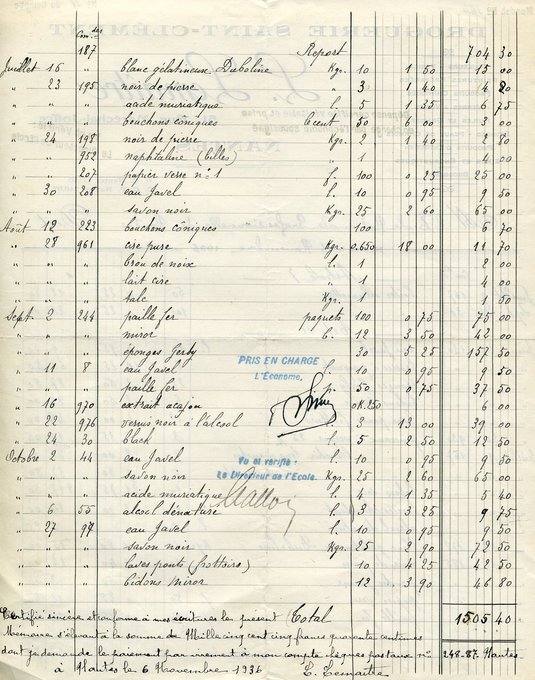 DROGUERIE SAINT-CLÉMENT
Com des
187 Report 704 30
Juillet 15 " blanc gélatineux Duboline Kgr. 10 1 50 15 00
" 23 195 noir de pierre " 3 1 40 4 20
" " acide muriatique l. 5 1 35 6 75
" " bouchons côniques le cent 50 6 00 3 00
" 24 198 noir de pierre Kgr. 2 1 40 2 80
" 952 naphtaline (billes) " 1 4 00
" 207 papier verre n° 1 f. 100 0 25 25 00
" 30 208 eau Javel l. 10 0 95 9 50
" " savon noir Kgr. 25 2 60 65 00
Août 12 223 bouchons côniques 100 6 70
" 28 961 cire pure Kgr. 0.650 18 00 11 70
" " brou de noix l. 1 2 00
" " lait cire " 1 4 00
" " talc Kgr. 1 1 50
Sept. 2 244 paille fer paquets 100 0 75 75 00
" " miror b. 12 3 50 42 00
" " éponges Gerby 30 5 25 157 50
" 11 8 eau Javel l. 10 0 95 9 50
" " paille fer p. 50 0 75 37 50
" 16 970 extrait acajou 0K.250 6 00
" 22 976 vernis noir à l'alcool 3 13 00 39 00
" 24 30 black l. 5 2 50 12 50
Octobre 2 44 eau Javel l. 10 0 95 9 50
" " savon noir Kgr. 25 2 60 65 00
" " acide muriatique l. 4 1 35 5 40
" 6 55 alcool dénaturé l. 3 3 25 9 75
" 27 97 eau Javel l. 10 0 95 9 50
" " savon noir Kgr. 25 2 90 72 50
" " laves ponts (frottoirs) 10 4 25 42 50
" " bidons miror 12 3 90 46 80
PRIS EN CHARGE
L'Économe,
Vu et vérifié :
Le Directeur de l'Ecole.
Total 1505 40
Certifié sincère et conforme à mes écritures le présent
Memoire s'élevant à la somme de Mille cinq cent cinq francs quarante centimes
dont je demande le paiement par virement à mon compte chèques postaux n° 248-87. Nantes.
à Nantes le 6 Novembre 1936 L. Lemaitre